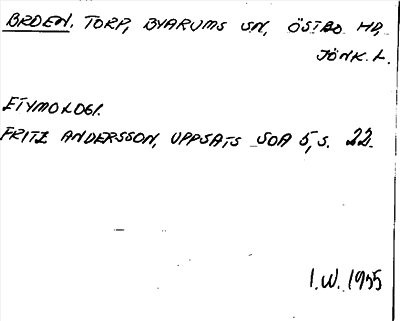 BRDEN, TORP, BYARUMS SN, ÖSTBO HD,
JÖNK. L.
ETYMOLOGI.
FRITZ ANDERSSON, UPPSATS SOA 5, S. 22.
I.W. 1955